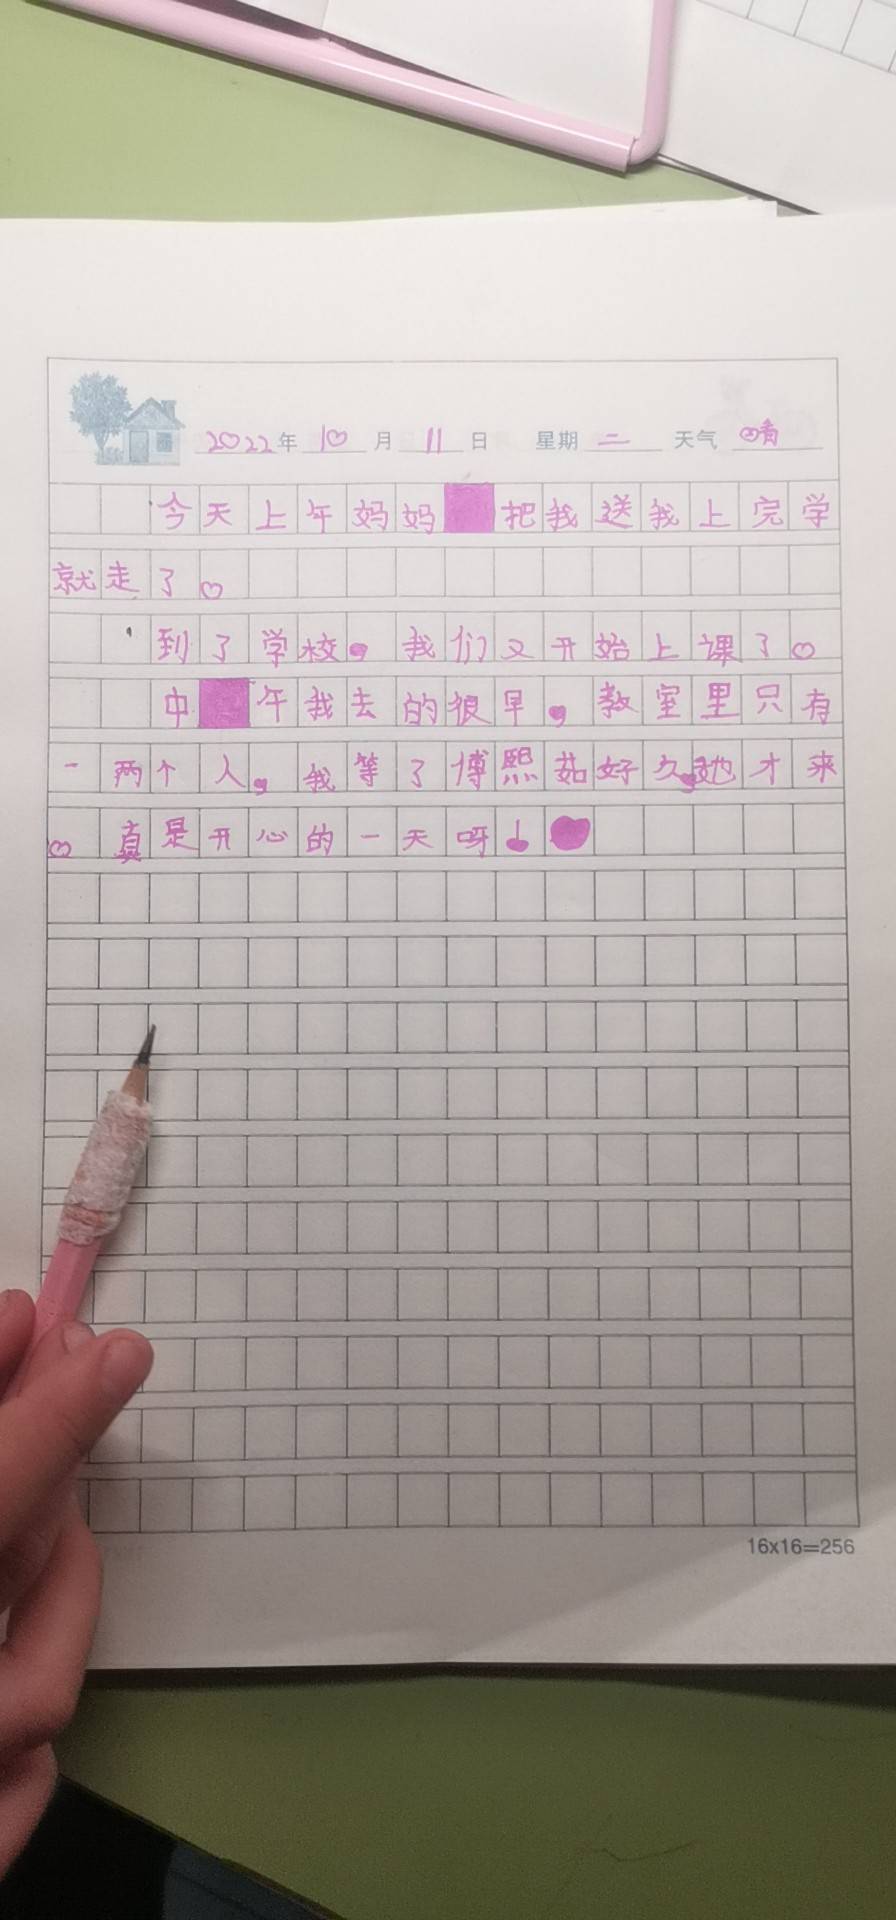 2022年10月11日 星期二 天气晴
今天上午妈妈把我送我上完学
就走了。
到了学校,我们又开始上课了。
中午我去的很早,教室里只有
一两个人,我等了博熙茹好久,她才来
。真是开心的一天呀!
16x16=256